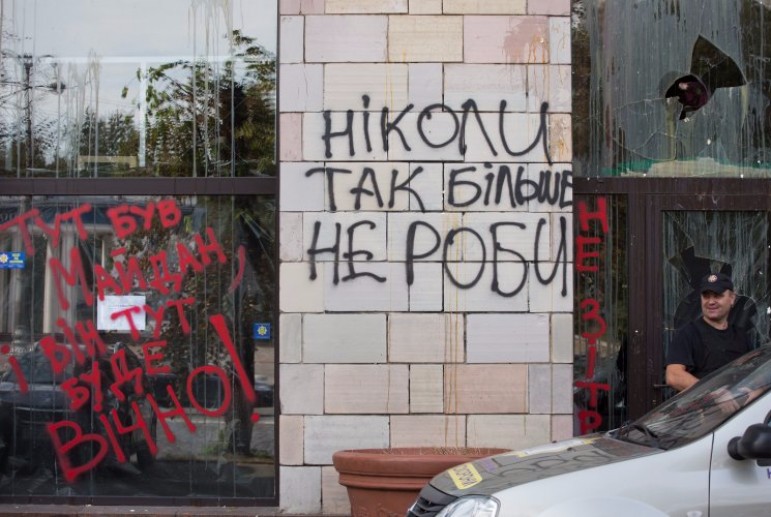 ТУТ БУВ
МАЙДАН,
І ВІН ТУТ
БУДЕ
ВІЧНО!
НІКОЛИ
ТАК БІЛЬШЕ
НЕ РОБИ
НЕ ЗІТР